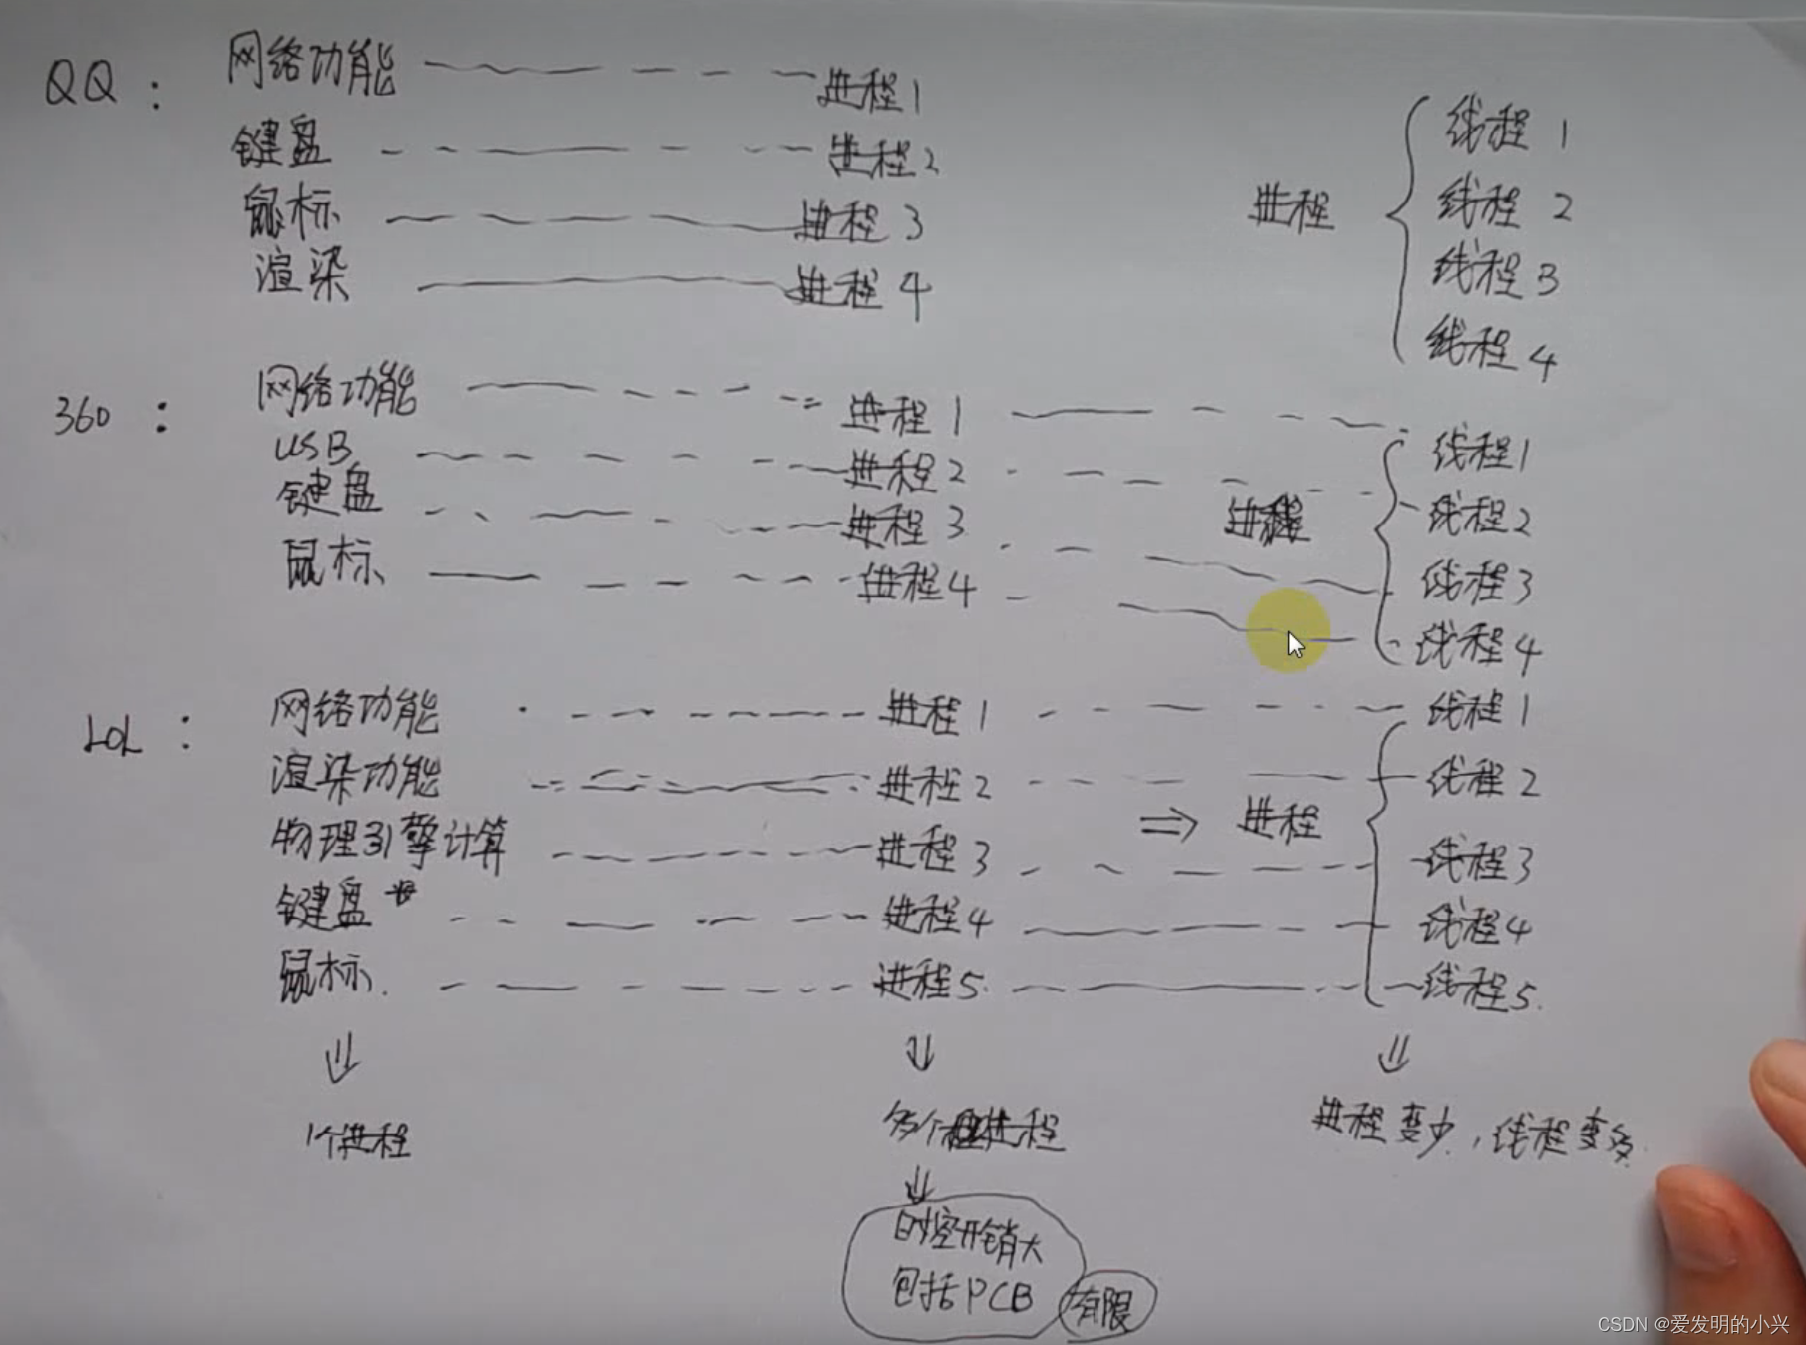 QQ： 网络功能 进程1
键盘 进程2
鼠标 进程3
渲染 进程4
进程
线程1
线程2
线程3
线程4
360： 网络功能 进程1
USB 进程2
键盘 进程3
鼠标 进程4
进程
线程1
线程2
线程3
线程4
LOL： 网络功能 进程1 线程1
渲染功能 进程2 线程2
⇒ 进程
物理引擎计算 进程3 线程3
键盘 进程4 线程4
鼠标. 进程5. 线程5.
1个进程
多个进程
进程变少，线程变多.
时空开销大
包括PCB
有限
CSDN @爱发明的小兴